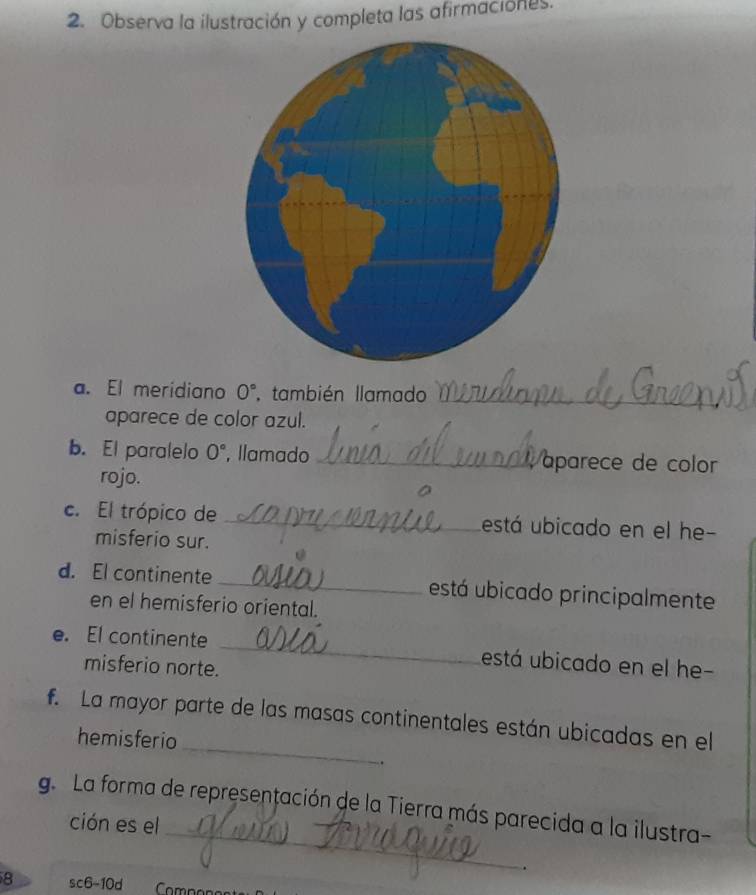 2. Observa la ilustración y completa las afirmaciones.
a. El meridiano 0°, también llamado meridiana de Greenwis
aparece de color azul.
b. El paralelo 0°, llamado linia del aparece de color
rojo.
c. El trópico de está ubicado en el he-
misferio sur.
d. El continente asia está ubicado principalmente
en el hemisferio oriental.
e. El continente asiá está ubicado en el he-
misferio norte.
f. La mayor parte de las masas continentales están ubicadas en el
hemisferio .
g. La forma de representación de la Tierra más parecida a la ilustra-
ción es el .
58 sc6-10d